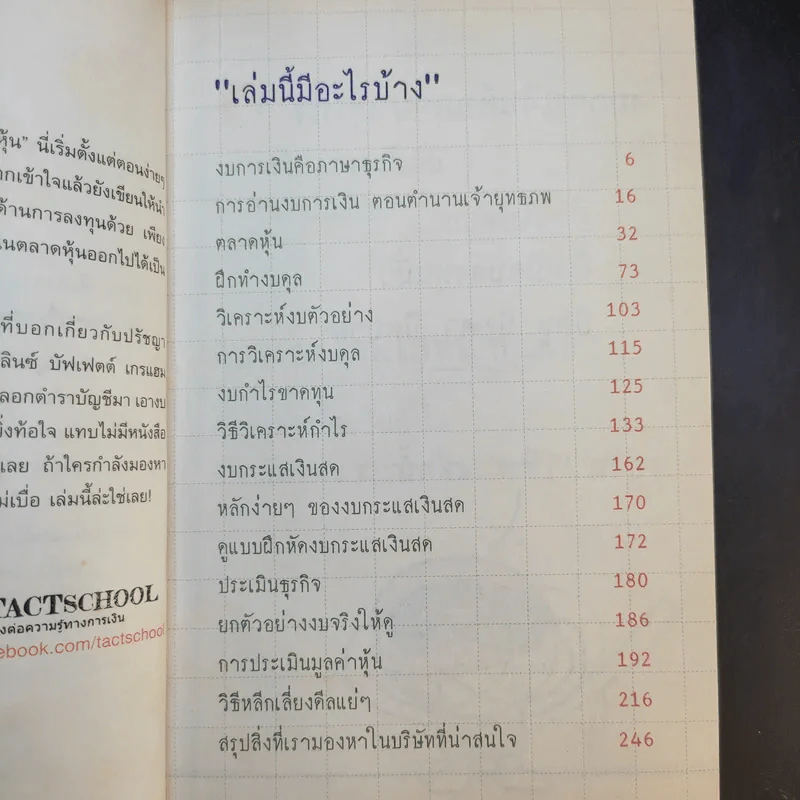 หุ้น” นี่เริ่มตั้งแต่ตอนง่ายๆ
ากเข้าใจแล้วยังเขียนให้นำ
ด้านการลงทุนด้วย เพียง
นตลาดหุ้นออกไปได้เป็น
ที่บอกเกี่ยวกับปรัชญา
ลินซ์ บัฟเฟตต์ เกรแฮม
ลอกตำราบัญชีมา เอางบ
ยิ่งท้อใจ แทบไม่มีหนังสือ
เลย ถ้าใครกำลังมองหา
ม่เบื่อ เล่มนี้ล่ะใช่เลย!
TACTSCHOOL
งต่อความรู้ทางการเงิน
ebook.com/tactschool
"เล่มนี้มีอะไรบ้าง"
งบการเงินคือภาษาธุรกิจ 6
การอ่านงบการเงิน ตอนตำนานเจ้ายุทธภพ 16
ตลาดหุ้น 32
ฝึกทำงบดุล 73
วิเคราะห์งบตัวอย่าง 103
การวิเคราะห์งบดุล 115
งบกำไรขาดทุน 125
วิธีวิเคราะห์กำไร 133
งบกระแสเงินสด 162
หลักง่ายๆ ของงบกระแสเงินสด 170
ดูแบบฝึกหัดงบกระแสเงินสด 172
ประเมินธุรกิจ 180
ยกตัวอย่างงบจริงให้ดู 186
การประเมินมูลค่าหุ้น 192
วิธีหลีกเลี่ยงดีลแย่ๆ 216
สรุปสิ่งที่เรามองหาในบริษัทที่น่าสนใจ 246